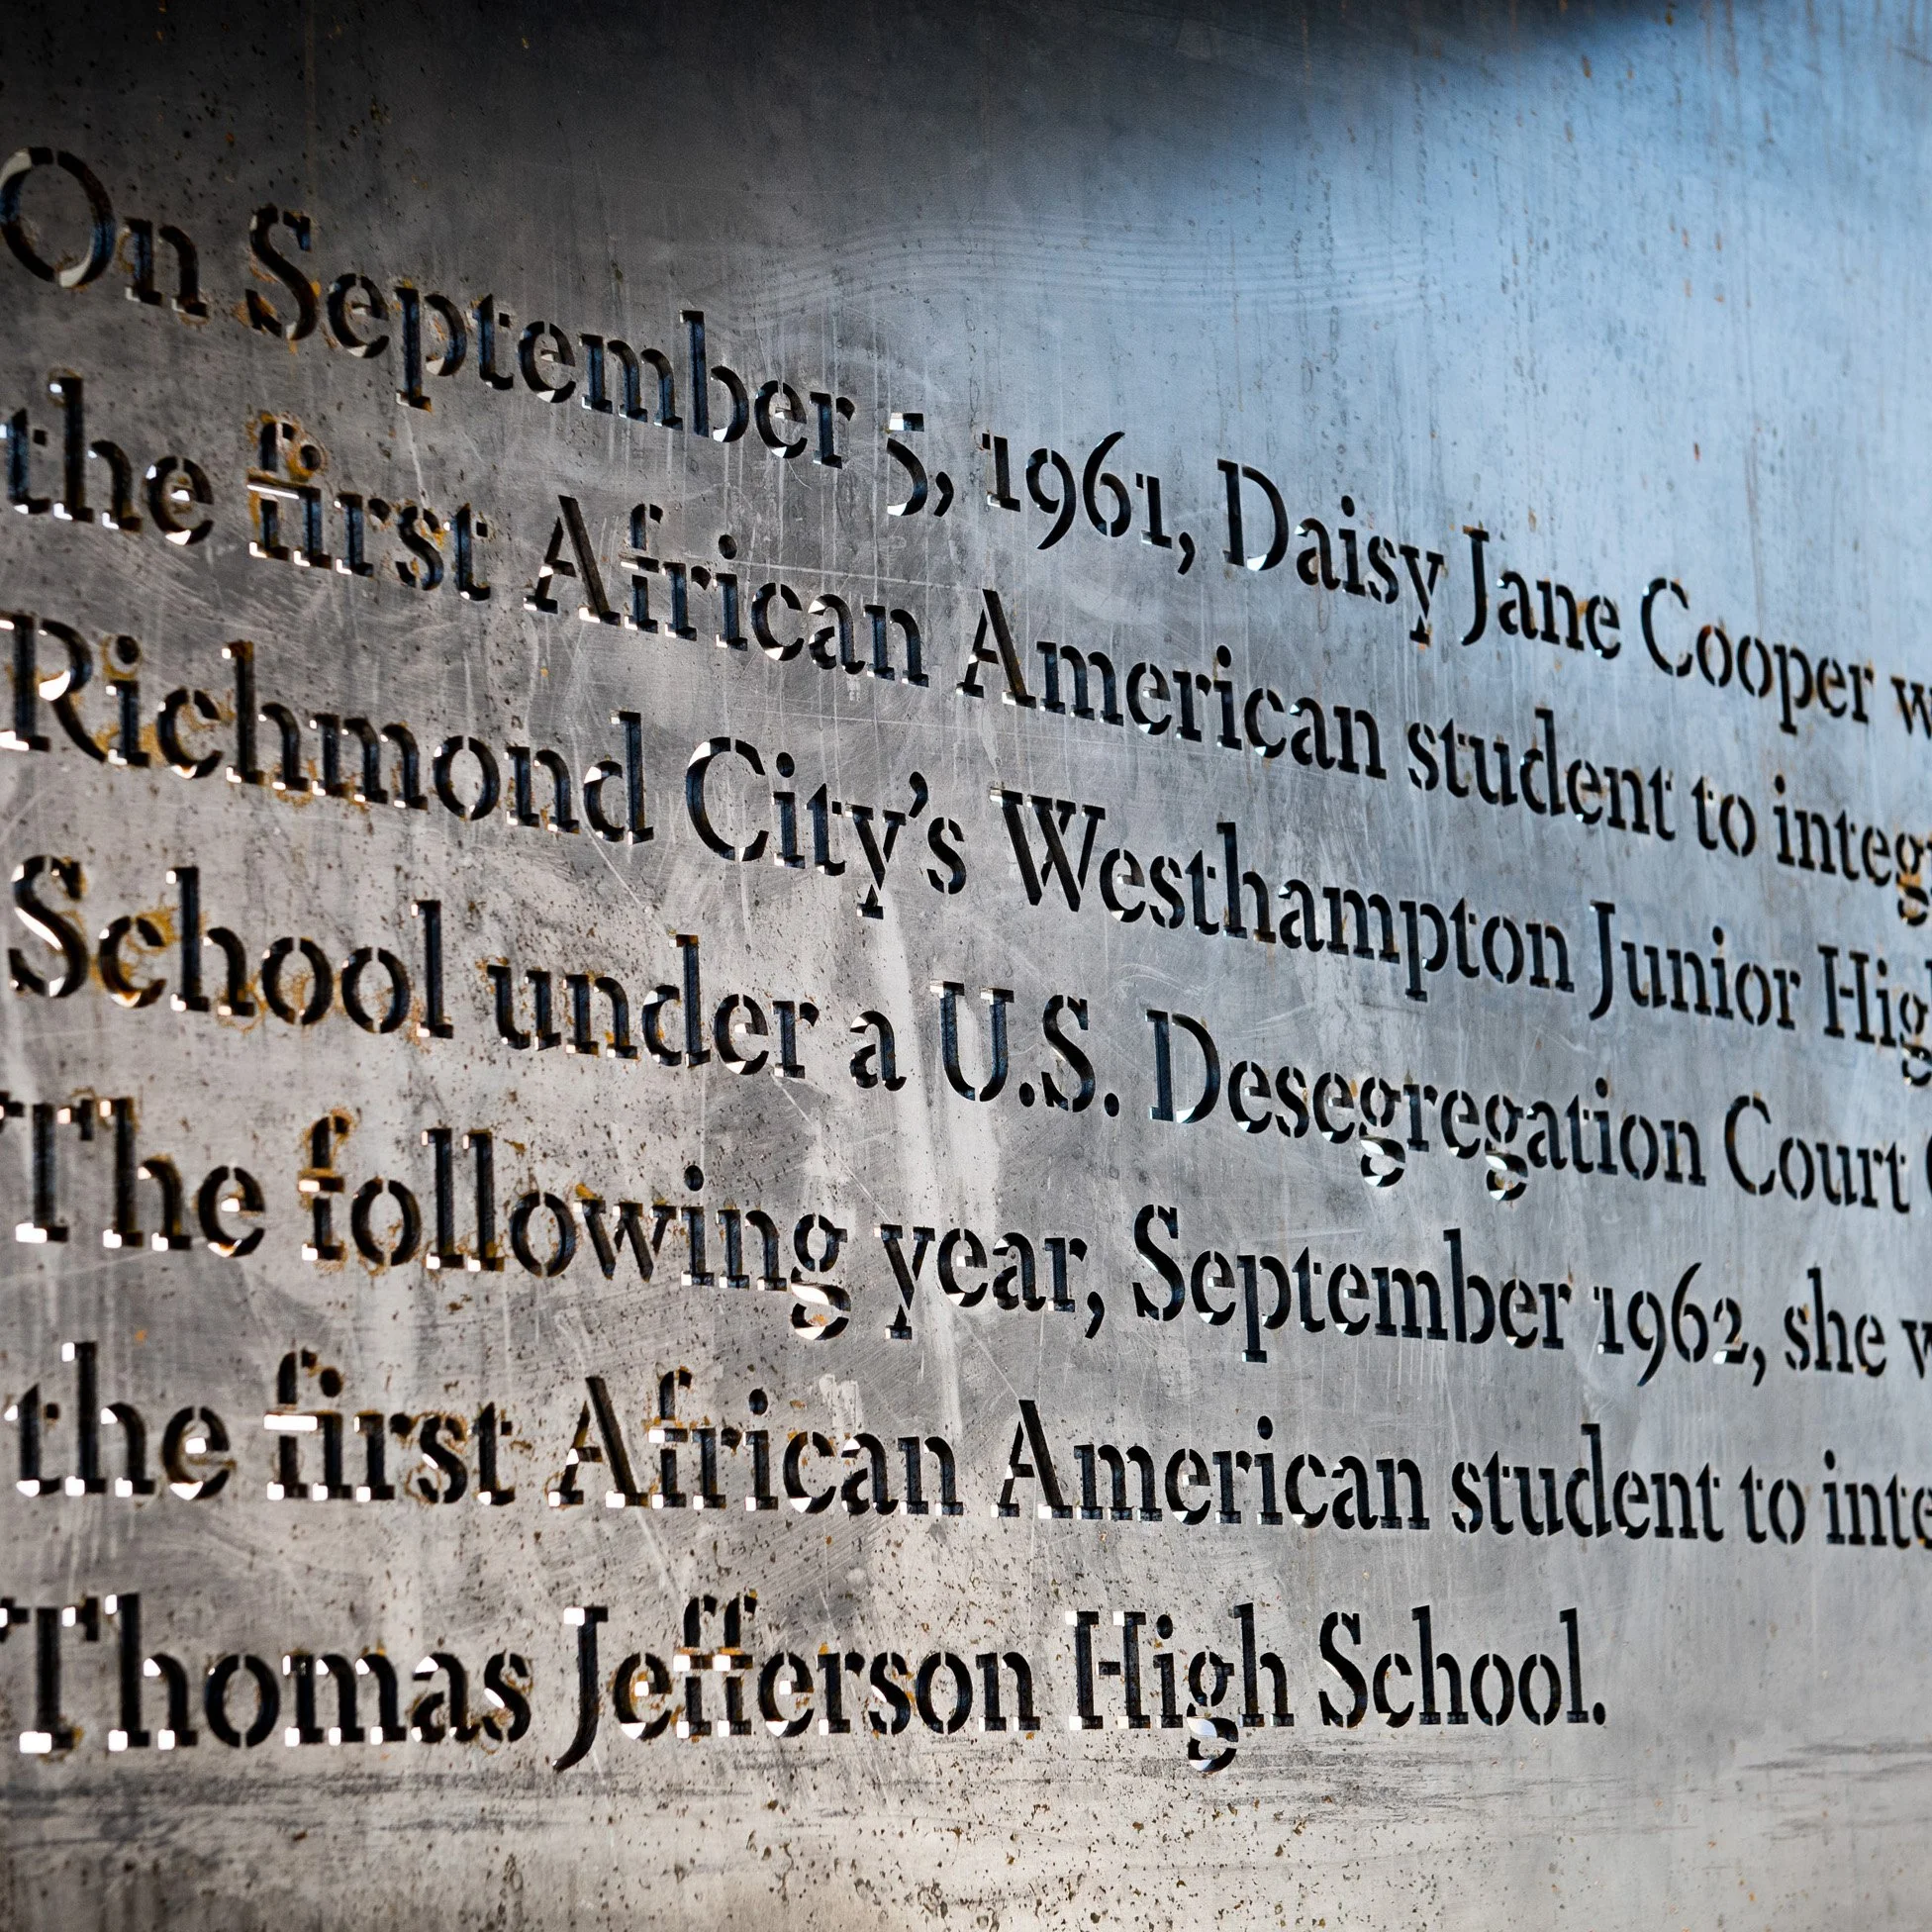 On September 5, 1961, Daisy Jane Cooper w
the first African American student to integr
Richmond City's Westhampton Junior Hig
School under a U.S. Desegregation Court
The following year, September 1962, she w
the first African American student to inte
Thomas Jefferson High School.